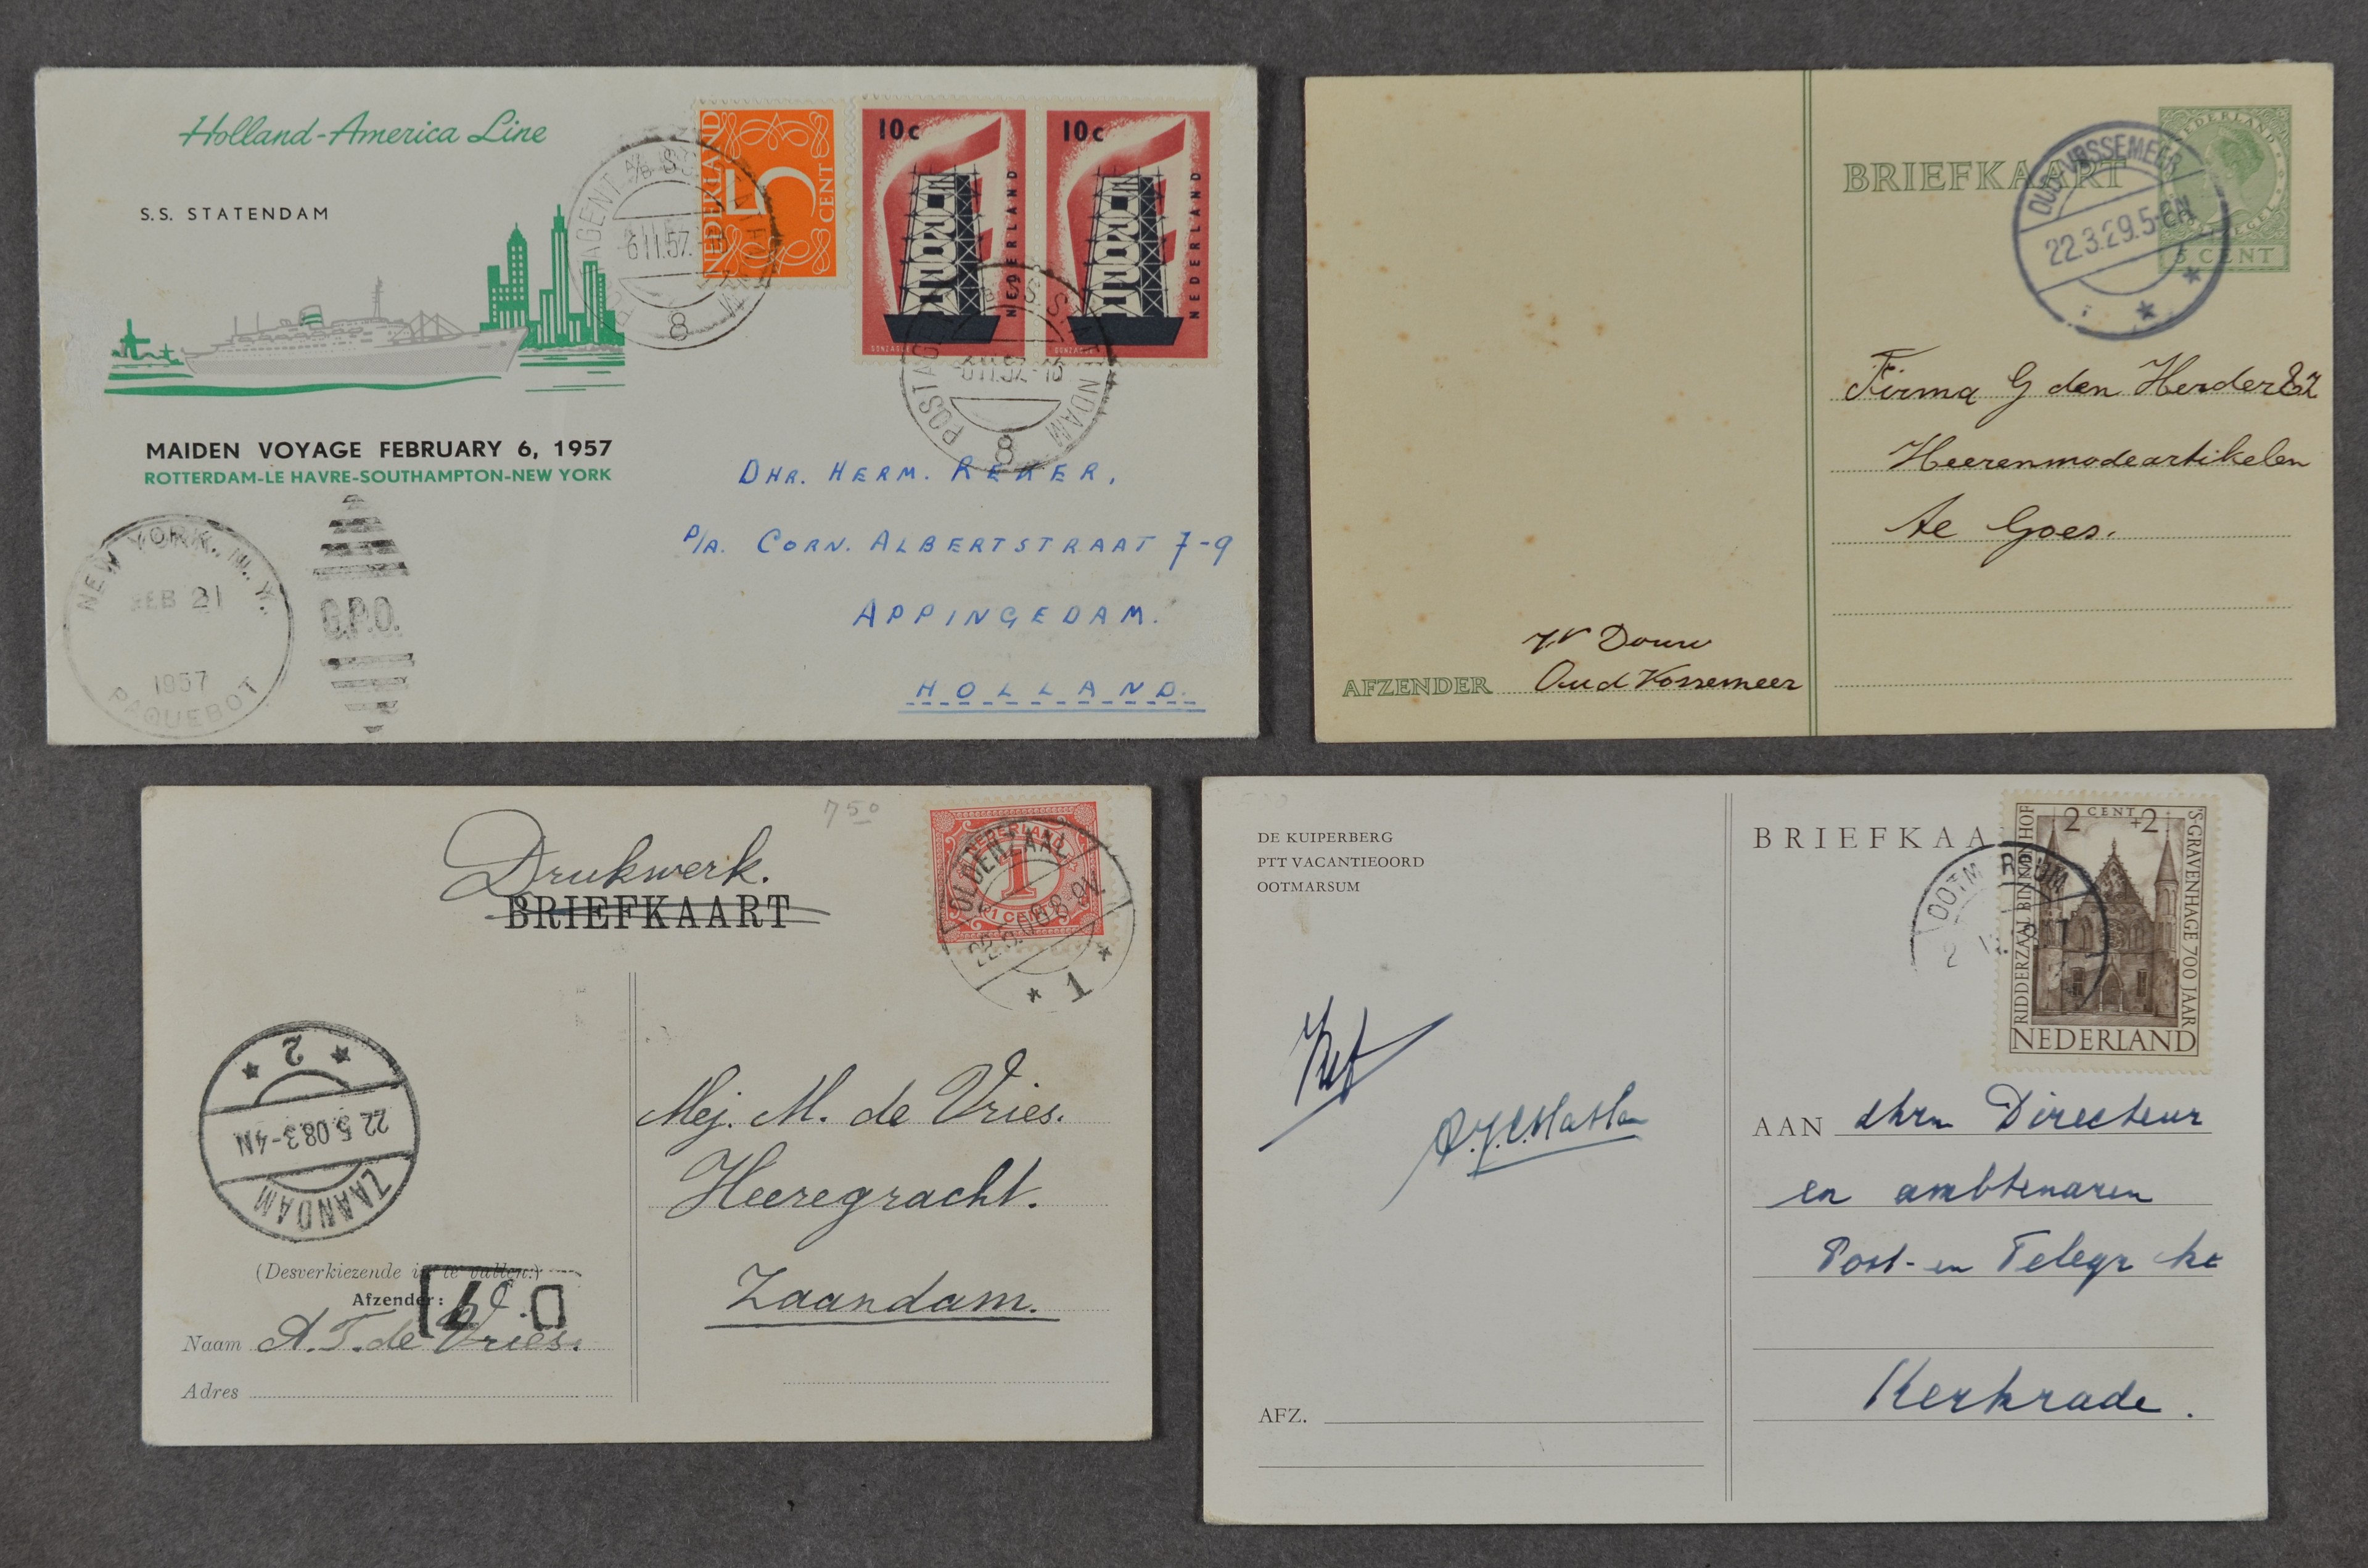 Holland-America Line
S.S. STATENDAM
MAIDEN VOYAGE FEBRUARY 6, 1957
ROTTERDAM-LE HAVRE-SOUTHAMPTON-NEW YORK
NEDERLAND
5
CENT
10c
NEDERLAND
10c
NEDERLAND
POSTAGENT A/B S.S. STATENDAM
6 II.57.
8
POSTAGENT
S.S.
6 II.57.-16
8
NEW YORK, N. Y.
FEB 21
1957
PAQUEBOT
G.P.O.
DHR. HERM. REKER,
P/A. CORN. ALBERTSTRAAT 7-9
APPINGEDAM.
HOLLAND.
BRIEFKAART
NEDERLAND
CENT
OUD-VOSSEMEER
22.3.29.5-6N
Firma G den Herder
Heerenmodeartikelen
te Goes.
Douw
AFZENDER Oud Vossemeer
7 50
Drukwerk.
BRIEFKAART
NEDERLAND
1
1 CENT
OLDENZAAL
22.5.08 8-9V
1
2
22 5.08 3-4N
ZAANDAM
Mej. M. de Vries.
Heeregracht.
Zaandam.
(Desverkiezende in te vullen:)
Afzender:
Naam A. T. de Vries.
Adres
DE KUIPERBERG
PTT VACANTIEOORD
OOTMARSUM
BRIEFKAA
2 CENT +2
RIDDERZAAL BINNENHOF
'S-GRAVENHAGE 700 JAAR
NEDERLAND
OOTMARSUM
AAN dhrn Directeur
en ambtenaren
Post- en Telegr
Kerkrade.
AFZ.